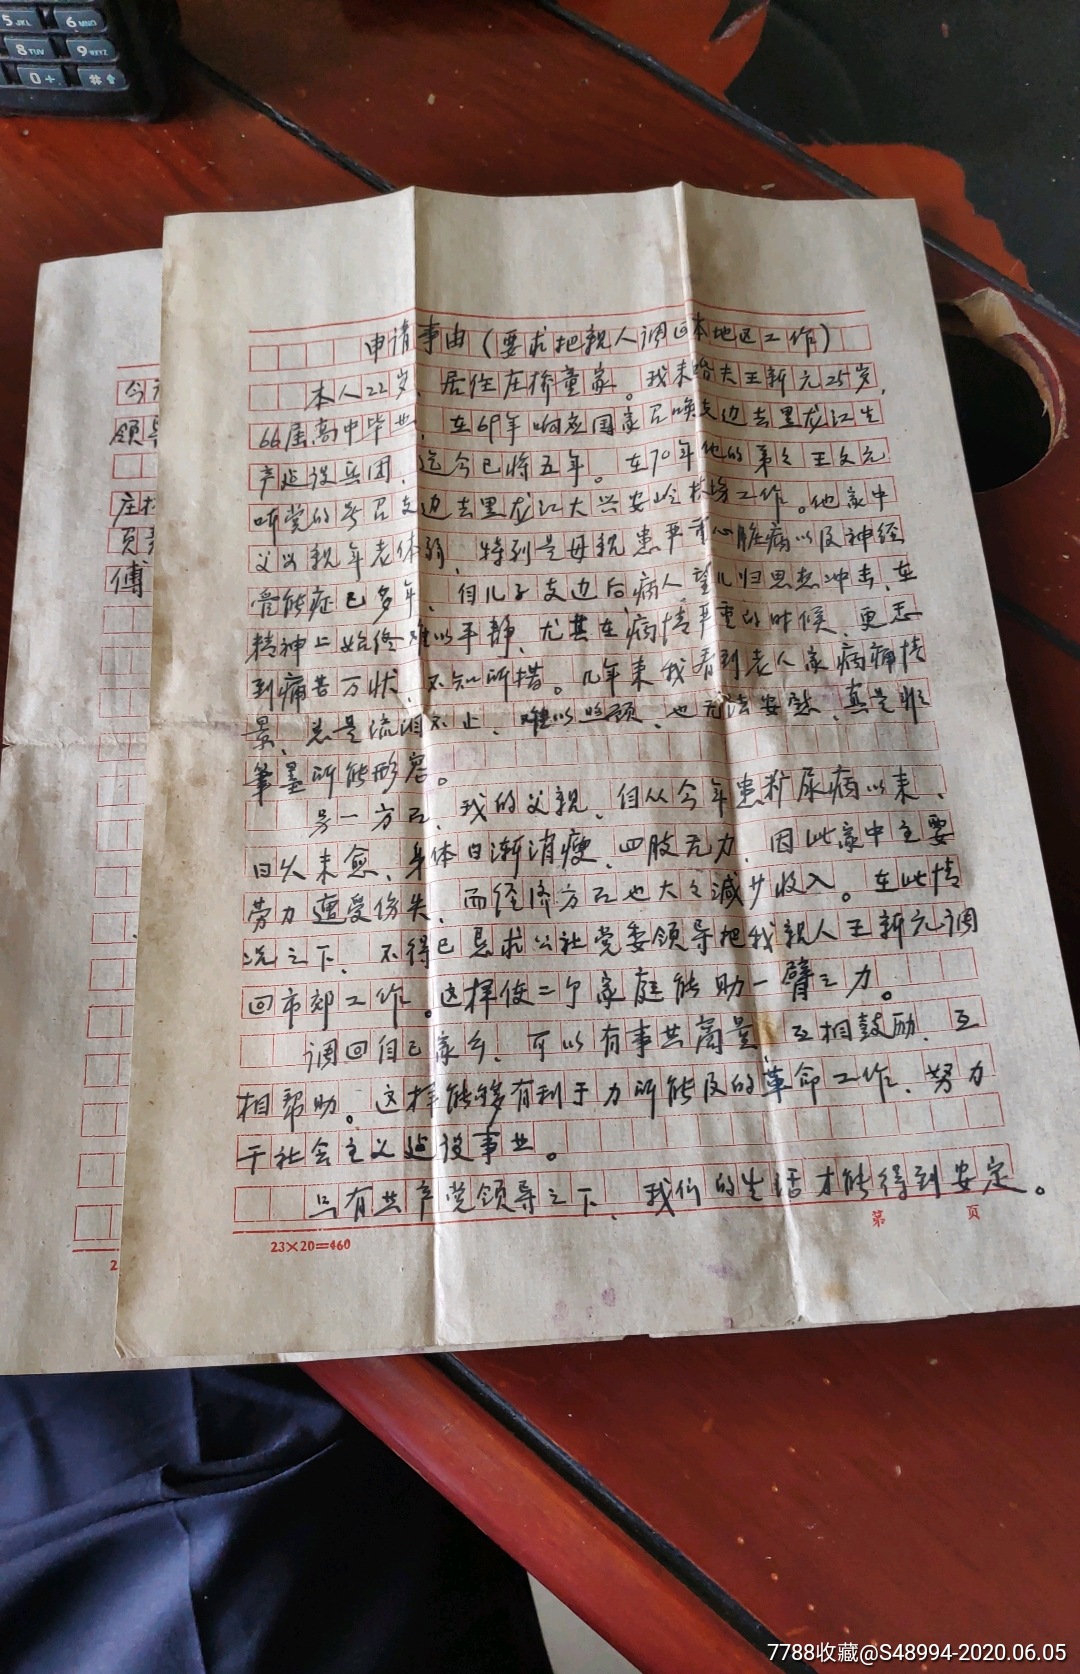 5 JKL 6 MNO
8 TUV 9 WXYZ
0 + #
申请事由（要求把亲人调回本地区工作）
本人22岁，居住庄桥童家。我未婚夫王新元25岁，
66届高中毕业，在69年响应国家召唤支边去黑龙江生
产建设兵团，迄今已将五年。在70年他的弟弟王文元
听党的号召支边去黑龙江大兴安岭林场工作。他家中
父母亲年老体弱，特别是母亲患严重心脏病以及神经
官能症已多年，自儿子支边后病人望儿归思想冲击，在
精神上始终难以平静，尤其在病情严重的时候，更态
到痛苦万状，不知所措。几年来我看到老人家病痛情
景，总是流泪不止，难以照顾，也无法安慰，真是非
笔墨所能形容。
另一方面，我的父亲，自从今年患粍尿病以来，
日久未愈，身体日渐消瘦，四肢无力，因此家中主要
劳力遭受伤失，而经济方面也大大减少收入。在此情
况之下，不得已恳求公社党委领导把我亲人王新元调
回市郊工作。这样使二个家庭能助一臂之力。
调回自己家乡，可以有事共商量，互相鼓励，互
相帮助。这样能够有利于力所能及的革命工作，努力
于社会主义建设事业。
只有共产党领导之下，我们的生活才能得到安定。
23×20=460
第 页
今
领导
庄桥
傅
2
7788收藏@S48994-2020.06.05